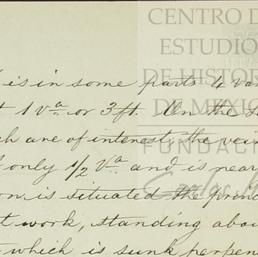 CENTRO D
ESTUDIO
DE HISTOR
DE MEXIC
FUNDAC
is in some parts 4 va
1 vª or 3 ft. On the
are of interest the vei
only 1/2 Vª and is near
is situated the princ
t work, standing abo
which is sunk perpen